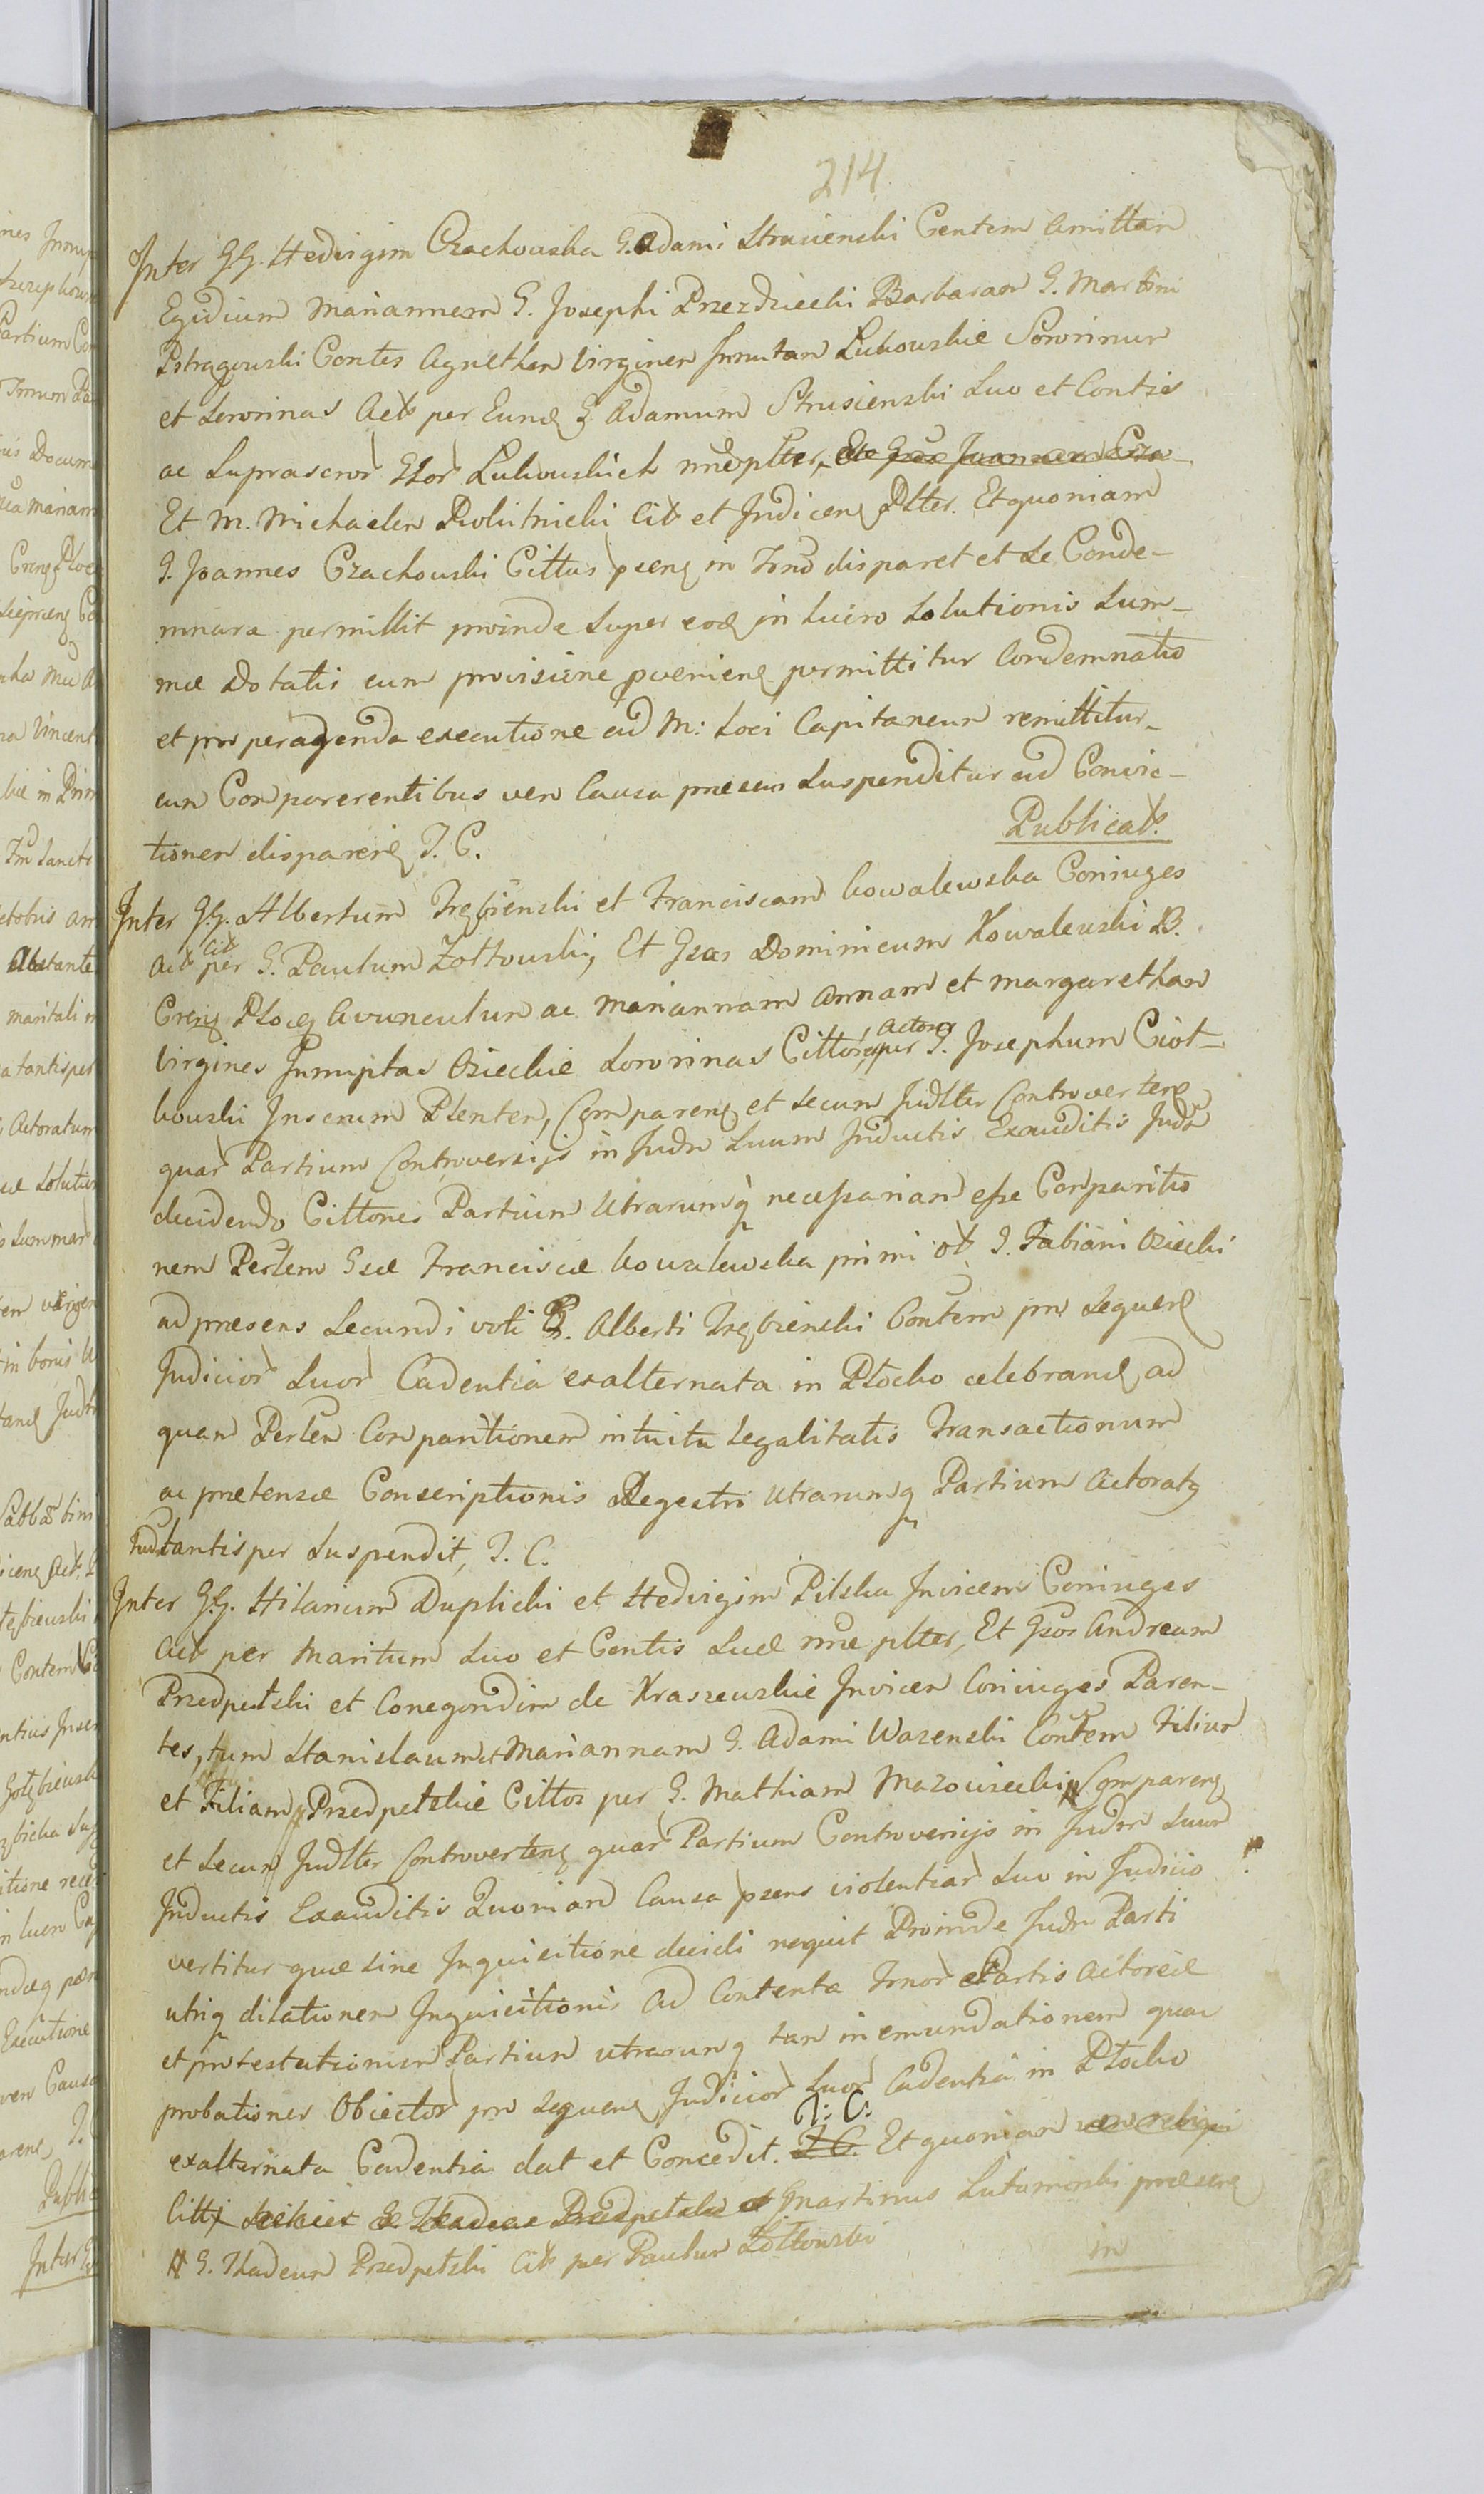 214
Inter GG. Hedvigim Czachowska G. Adami Strusienski Contem Amittam
Egidium Mariannem G. Josephi Przezdziecki Barbaram G. Martini
Pstragowski Contes Agnethen Virginem Innutam Lukowskie Sororinum
et Sororinas Act per Eund G Adamum Strusienski Suo et Contis
ac Suprascror Gsor Lukowskich nneplter,
Et M. Michaelem Plolitnicki Cit et Judicem Plter. Etquoniam
G. Joannes Czachowski Cittus psens in Trno disparet et Se Conde-
mnara permillit proinde Super eod in lucro Solutionis Sum-
mæ Dotatis cum provisione pveniens permittitur Condemnatio
et pro peragenda executione ad M: Loci Capitaneum remittitur
cum Comparerentibus vero Causa præsens Suspenditur ad Convic-
tionem disparens T. C.
Publicat.
Inter GG. Albertum Trębienski et Franciscam Kowalewska Coniuges
Act Cit per G. Paulum Zołtowski, Et Gsos Dominicum Kowalewski B.
Crens Ploc Avunculum ac Mariannam Annam et Margaretham
Virgines Innuptas Osieckie Sororinas Cittos Actores per G. Josephum Ciot-
kowski Juscrum Plenten, Comparens et Secum Judlter Controvertens
quar Partium Controversijs in Judm Suum Inductis Exauditis Judm
decidendo Cittones Partium Utrarumq necessariam esse Comparitio
nem Perlem Gsæ Franciscæ Kowalewska primi vt G. Fabiani Osiecki
ad præsens Secundi voti G. Alberti Trębienski Contem pro Sequens
Judicior Suor Cadentia exalternata in Płocko celebrand ad
quam Perlem Comparitionem intuitu legalitatis Transactionum
ac prætensæ Conscriptionis Regestri Utrarumq Partium Actoratq
Judm tantisper Suspendit, T. C.
Inter GG. Hilarium Duplicki et Hedvigim Pilska Invicem Coniuges
Act per Maritum Suo et Contis Suæ nne plter, Et Gsos Andream
Przedpełski et Conegondim de Kraszewskie Invicem Coniuges Paren-
tes, tum Stanislaum et Mariannam G. Adami Wazenski Contem Filium
et Filiam Przedpełskie Cittos per G. Mathiam Mazowiecki # Comparens
et Secum Judlter Controvertens quar Partium Controversijs in Judm Suum
Inductis Exauditis Quoniam Causa psens violentiar Suo in Judicio
vertitur quæ Sine Inquisitione decidi nequit Proinde Judm Parti
utriq dilationem Inquisitionis Ad Contenta Trnor Partis Actoreæ
et protestationum Partium utrarumq tam in emundationem quam
probationes Obiector pro Sequens Judicior Suor Cadentia in Płocko
exalternata Cadentia dat et Concedit. T: C: Et quoniam vero reliqui
Citti Scilicet G. Thadeus Przedpełski et G martinus Lutomirski præsens
# G. Thadeum Przedpełski Cit per Paulum Żołtowski
in